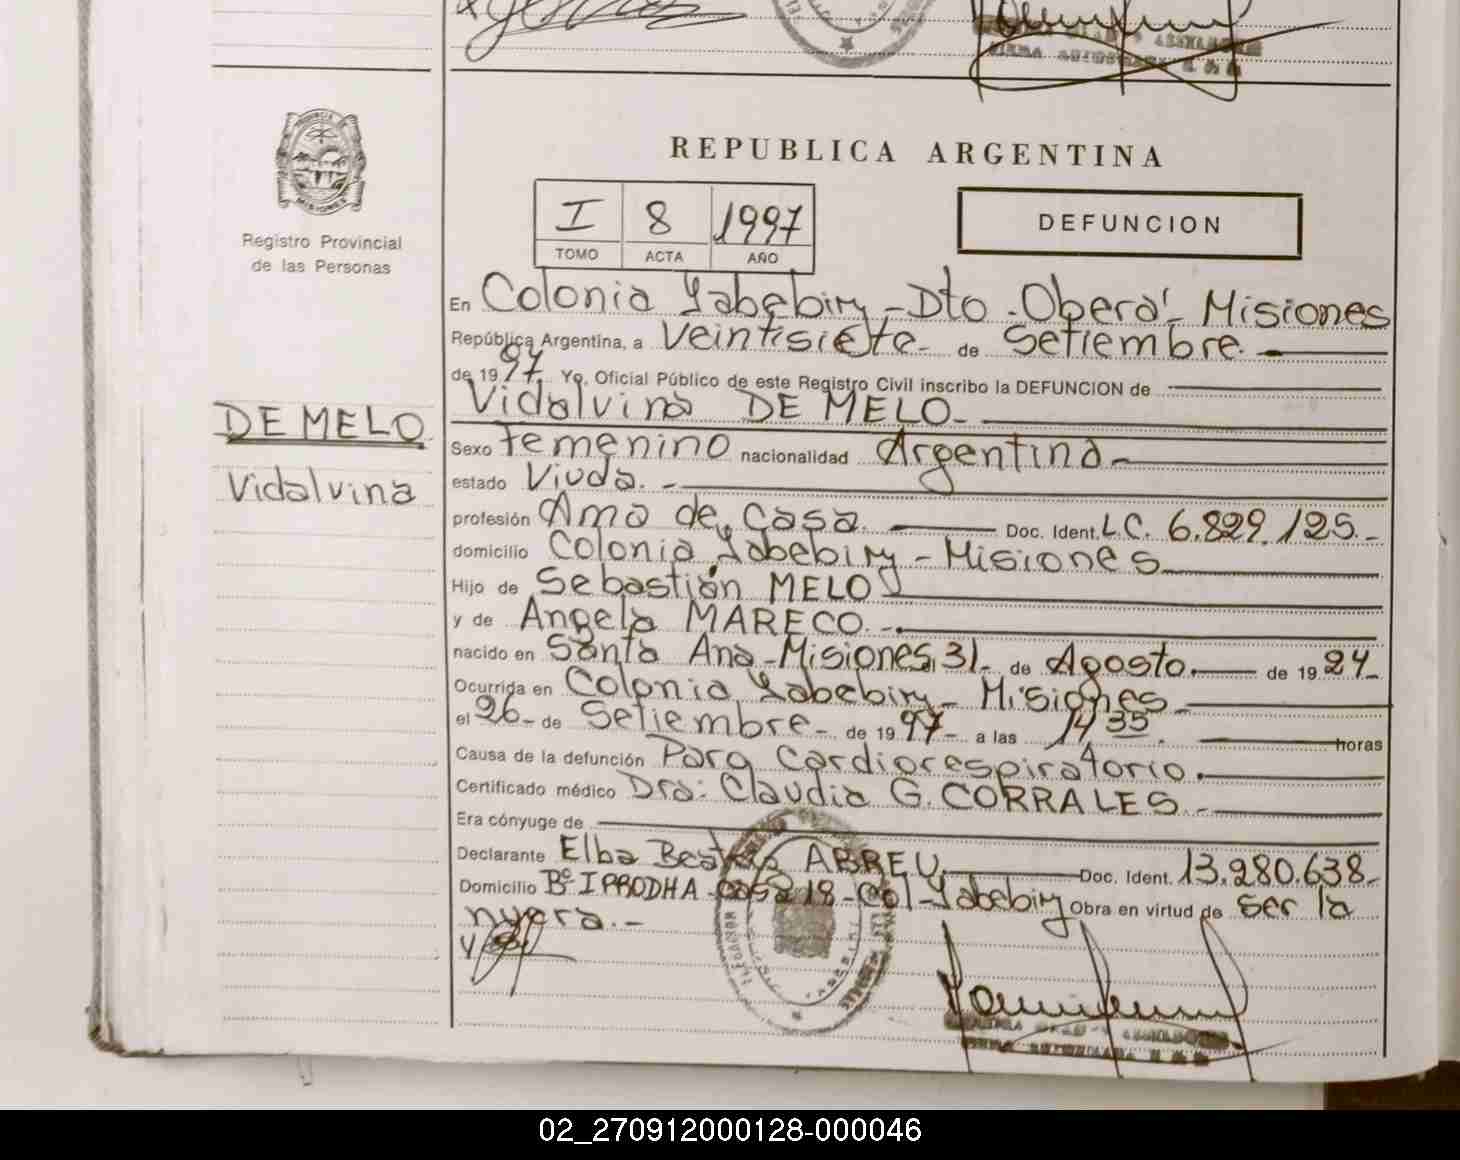 PROVINCIA DE
MISIONES
Registro Provincial
de las Personas
DE MELO
Vidalvina
REPUBLICA ARGENTINA
I 8 1997
TOMO ACTA AÑO
DEFUNCION
En Colonia Yabebiry - Dto. Oberá - Misiones
República Argentina, a Veintisiete - de Setiembre. -
de 1997. Yo, Oficial Público de este Registro Civil inscribo la DEFUNCION de
Vidalvina DE MELO -
Sexo Femenino nacionalidad Argentina -
estado Viuda. -
profesión Ama de Casa. Doc. Ident. L.C. 6.829.125. -
domicilio Colonia Yabebiry - Misiones
Hijo de Sebastián MELO
y de Angela MARECO. -
nacido en Santa Ana - Misiones, 31 - de Agosto. de 1924 -
Ocurrida en Colonia Yabebiry - Misiones -
el 26 - de Setiembre - de 1997 - a las 14 35 horas
Causa de la defunción Paro cardiorespiratorio.
Certificado médico Dra: Claudia G. CORRALES -
Era cónyuge de
Declarante Elba Beatriz ABREU. Doc. Ident. 13.280.638 -
Domicilio Bº IPRODHA - casa 18 - Col - Yabebiry Obra en virtud de ser la
nuera. -
02_270912000128-000046